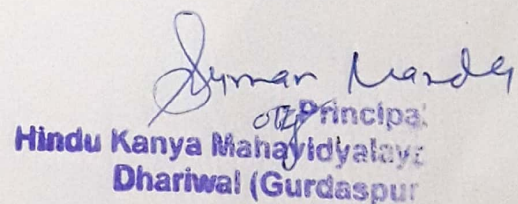 Suman Nanda
Offg Principal
Hindu Kanya Mahavidyalaya
Dhariwal (Gurdaspur